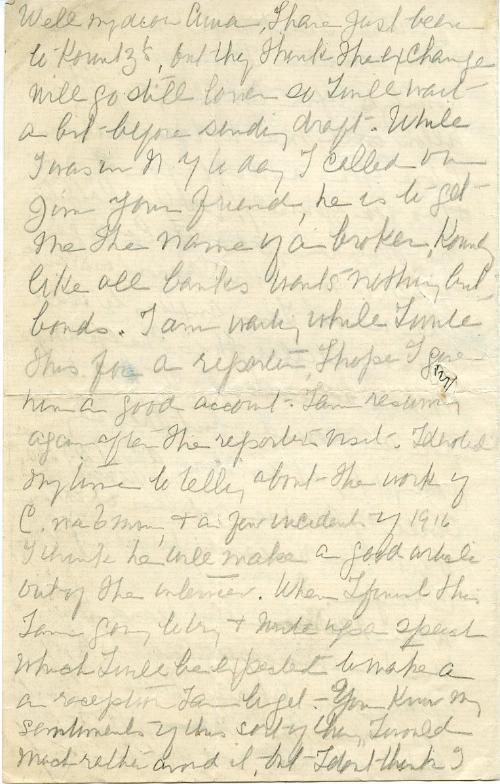 Well my dear Anna, I have just been
to Kountz's, but they think the exchange
will go still lower so I will wait
a bit before sending draft. While
I was in N Y to day I called on
Jim your friend, he is to get
me the name of a broker, Kountz
like all banks wants nothing but
bonds. I am waiting while I write
this for a reporter, I hope I give
him a good account. I am resuming
again after the reporters visit. I devoted
my time to telling about the work of
C. na mBan, & a few incidents of 1916
I think he will make a good article
out of the interview. When I finish this
I am going to try & make up a speech
which I will be expected to make a
a reception I am to get. You know my
sentiments of this sort of thing, I would
much rather avoid it, but I dont think I